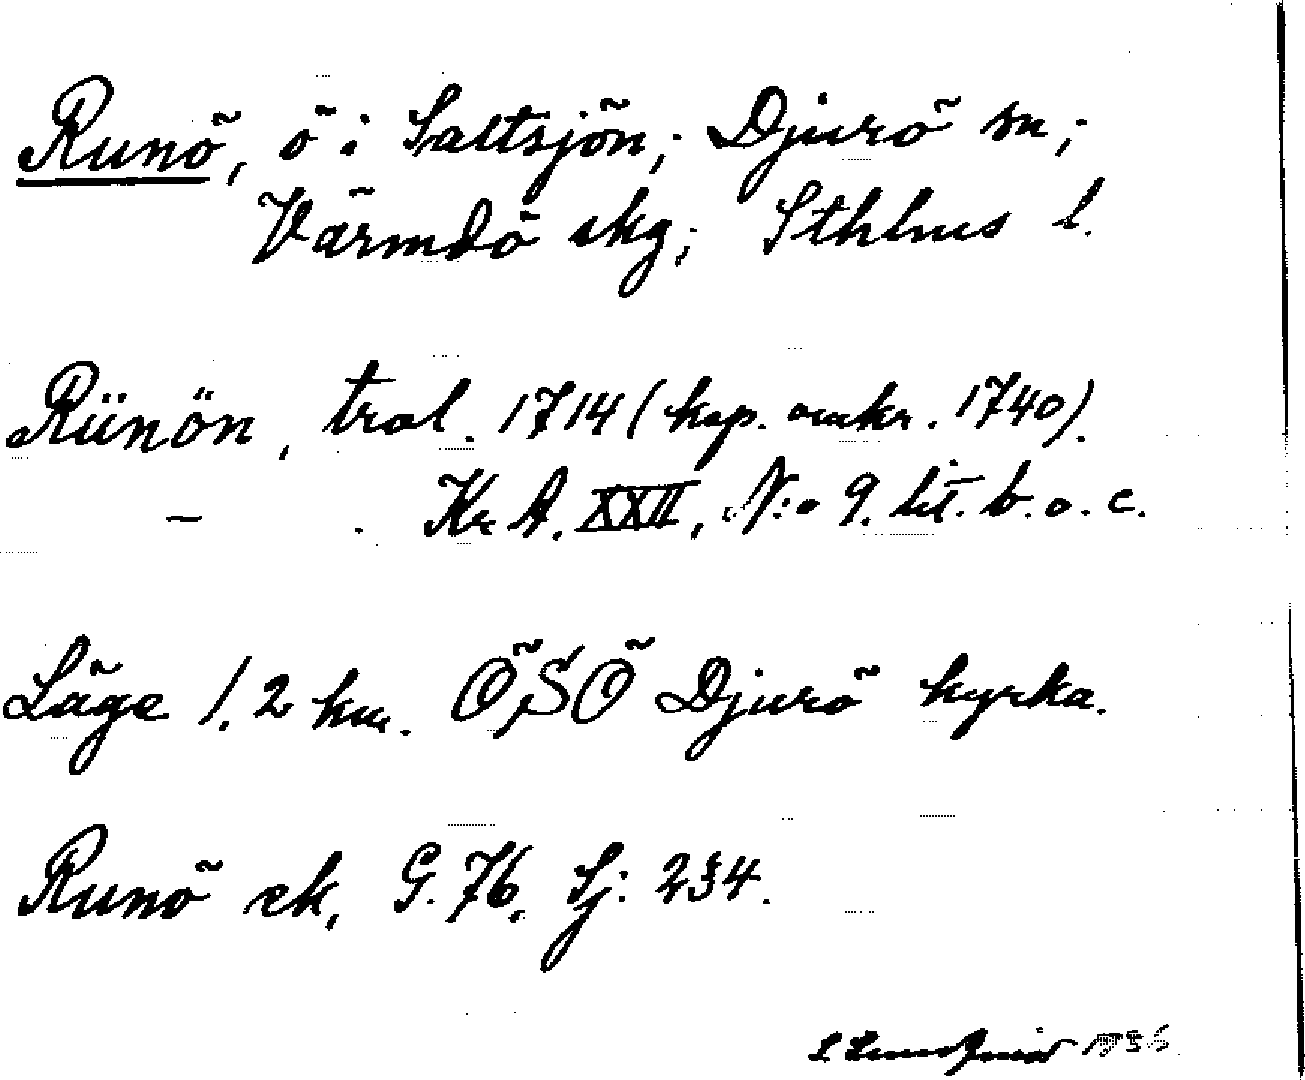 Runö, ö i Saltsjön; Djurö sn;
Värmdö skg; Sthlms l.
Rünön, trol. 1714 (kop. omkr. 1740).
— . Kr A. XXII, N:o 9. lit. b. o. c.
Läge 1,2 km. ÖSÖ Djurö kyrka.
Runö ek, G. 76, Sj: 234.